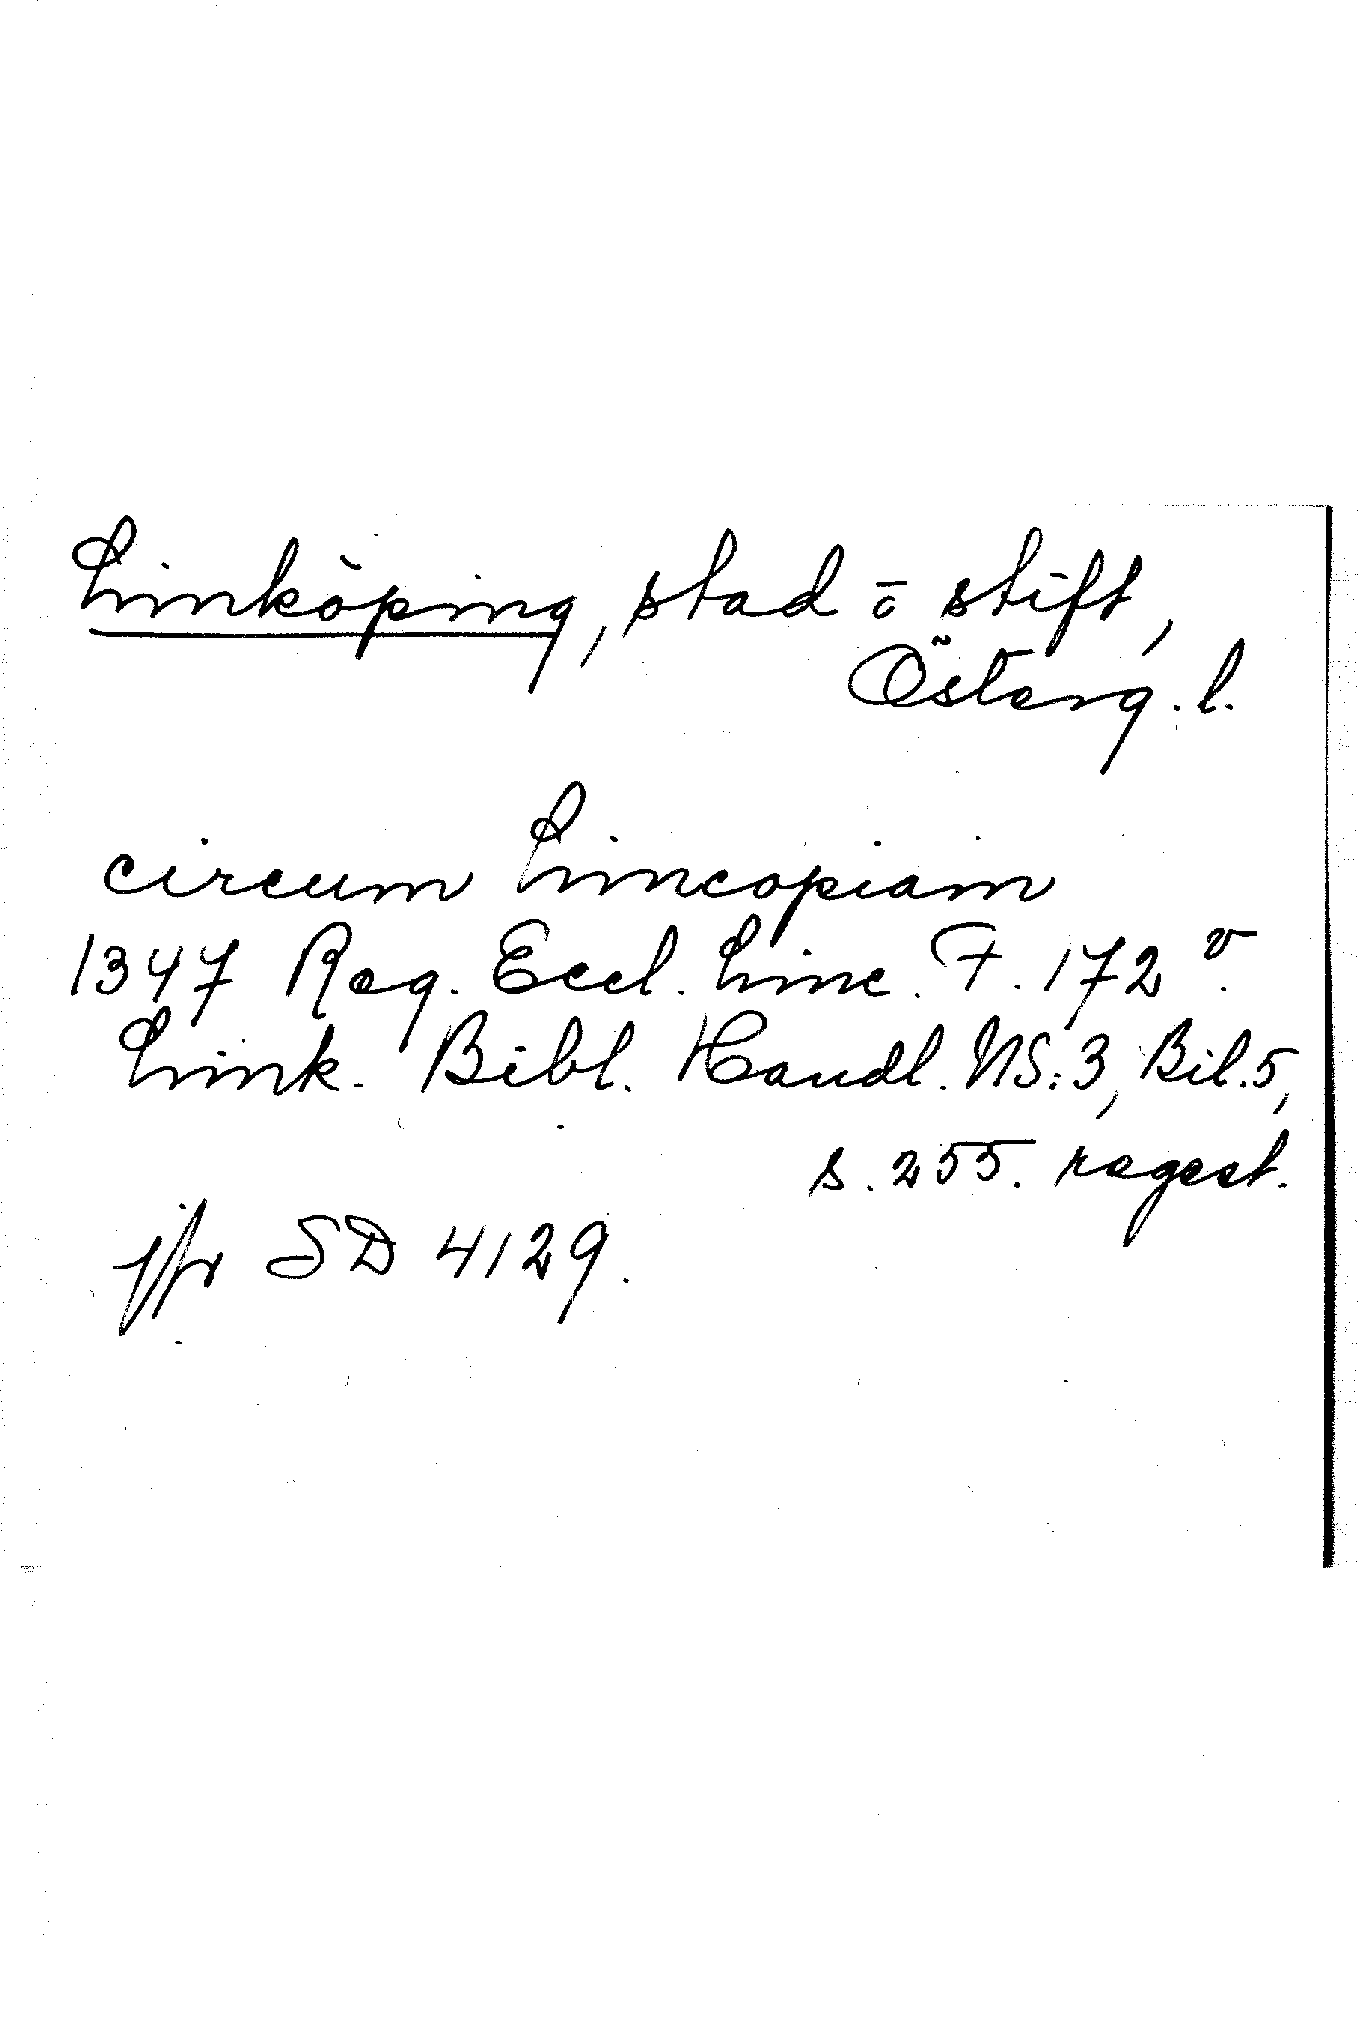 Linköping, stad o stift,
Österg. l.
circum Lincopiam
1347 Reg. Eccl. Linc. F. 172 v.
Link. Bibl. Handl. NS: 3, Bil. 5,
s. 255. regest.
jfr SD 4129.